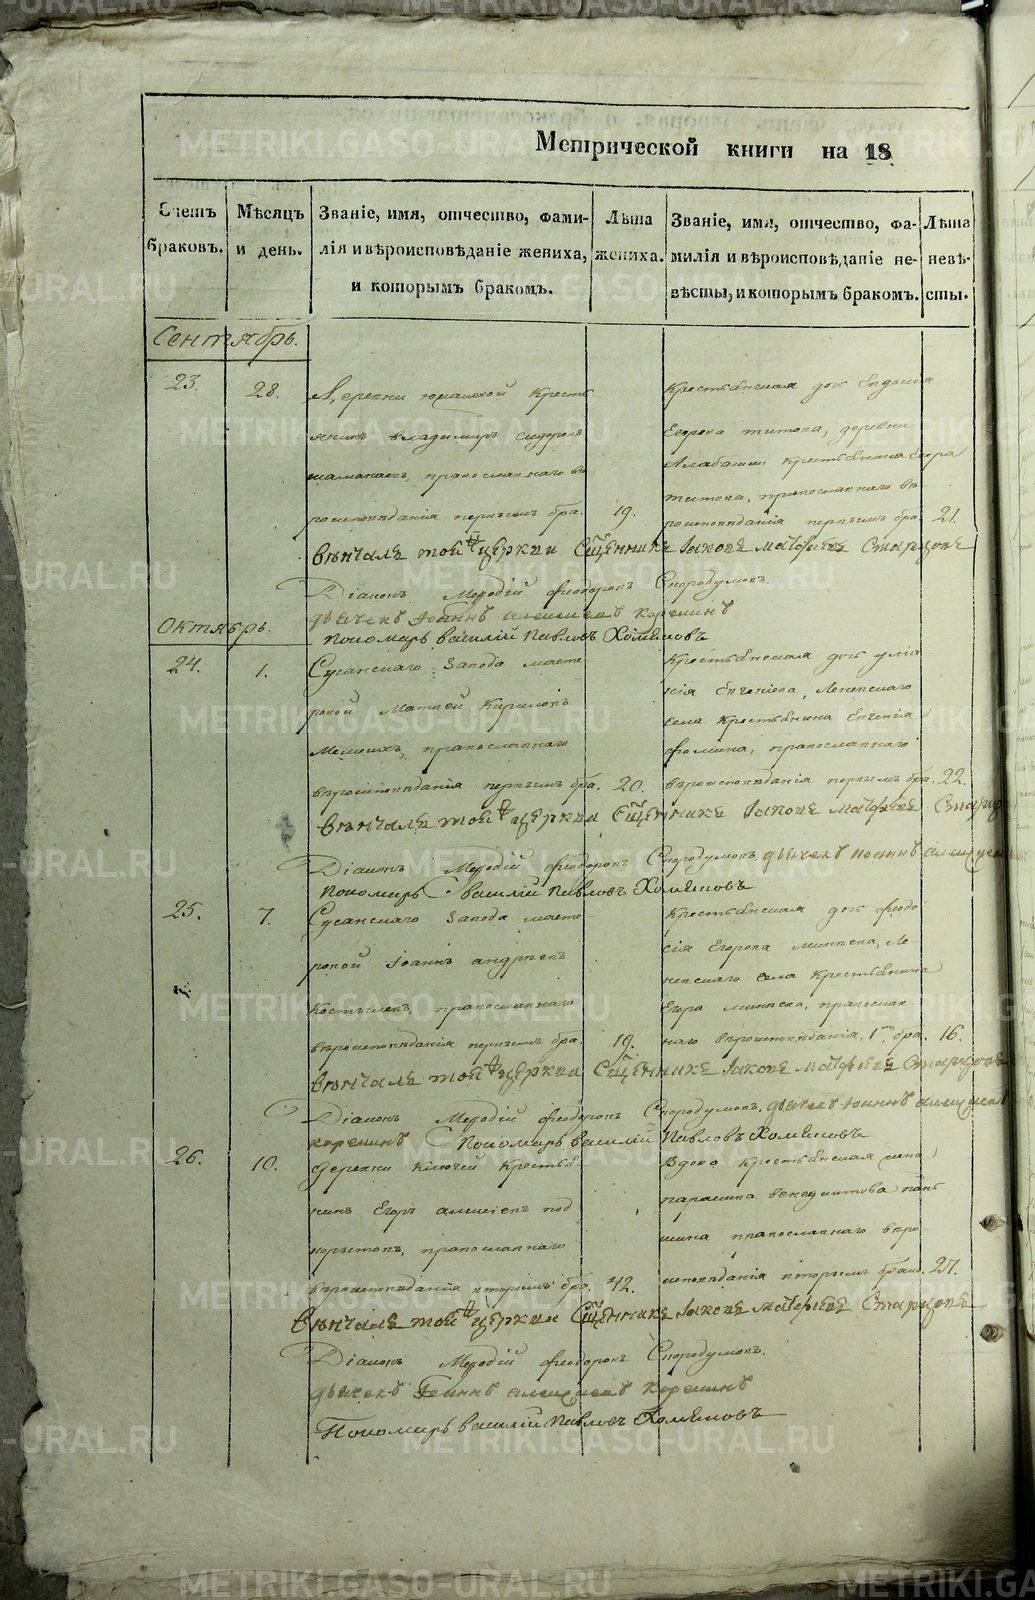 Метрической книги на 18
Счетъ браковъ.
Мѣсяцъ и день.
Званіе, имя, отчество, фами-
лія и вѣроисповѣданіе жениха,
и которымъ бракомъ.
Лѣта жениха.
Званіе, имя, отчество, фа-
милія и вѣроисповѣданіе не-
вѣсты, и которымъ бракомъ.
Лѣта невѣ-
сты.
Сентябрь.
23.
28.
Деревни кресть
янинъ владимиръ сидоровъ
православнаго вѣ
роисповѣданія первымъ бра.
19.
Крестьянская дочь Евдокія
Егорова титова, деревни
Алабашки крестьянина Егора
титова, православнаго вѣ
роисповѣданія первымъ бра.
21.
вѣнчалъ той церкви Сщенникъ Іаковъ Матфѣевъ Старцовъ
Діаконъ Меѳодій Ѳеодоровъ Словодумовъ.
дьячекъ Іоаннъ алексѣевъ Коренинъ
Пономарь Василій Павловъ Хомяковъ
Октябрь.
24.
1.
Сусанскаго Завода масте
ровой Матвей Кириловъ
православнаго
вѣроисповѣданія первымъ бра.
20.
Крестьянская дочь уліа
нія Евгеніева,
села крестьянина Евгенія
Фомина, православнаго
вѣроисповѣданія первымъ бра.
22.
вѣнчалъ той церкви Сщенникъ Іаковъ Матфѣевъ
Діаконъ Меѳодій Ѳеодоровъ Словодумовъ. дьячекъ Іоаннъ
Пономарь Василій Павловъ Хомяковъ
25.
7.
Сусанскаго Завода масте
ровой Іоаннъ андрѣевъ
Костылевъ, православнаго
вѣроисповѣданія первымъ бра.
19.
Крестьянская дочь Ѳеодо
сія Егорова Минѣева, Ле
невскаго села крестьянина
Егора Минѣева, православ
наго вѣроисповѣданія, 1мъ бра.
16.
вѣнчалъ той церкви Сщенникъ Іаковъ Матфѣевъ Старцовъ
Діаконъ Меѳодій Ѳеодоровъ Словодумовъ. дьячекъ Іоаннъ алексѣевъ
Коренинъ Пономарь Василій Павловъ Хомяковъ
26.
10.
деревни Ключей крестья
нинъ Егоръ алексѣевъ под
корытовъ, православнаго
вѣроисповѣданія вторымъ бра.
42.
Вдова крестьянская жена
параскева венедиктова пань
шина православнаго вѣро
исповѣданія вторымъ брак.
27.
вѣнчалъ той церкви Сщенникъ Іаковъ Матфѣевъ Старцовъ
Діаконъ Меѳодій Ѳеодоровъ Словодумовъ.
дьячекъ Іоаннъ алексѣевъ Коренинъ
Пономарь Василій Павловъ Хомяковъ
METRIKI.GASO-URAL.RU